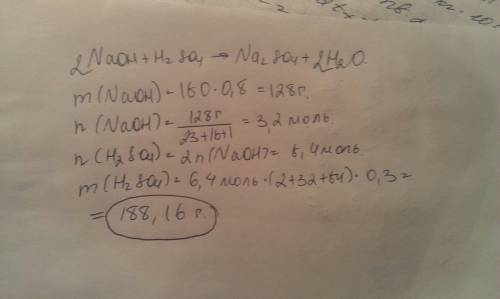 2NaOH + H2SO4 → Na2SO4 + 2H2O.
m(NaOH) = 160·0,8 = 128г.
n(NaOH) = 128г / 23+16+1 = 3,2 моль
n(H2SO4) = 2n(NaOH) = 6,4 моль
m(H2SO4) = 6,4 моль·(2+32+64)·0,3 =
= 188,16 г.